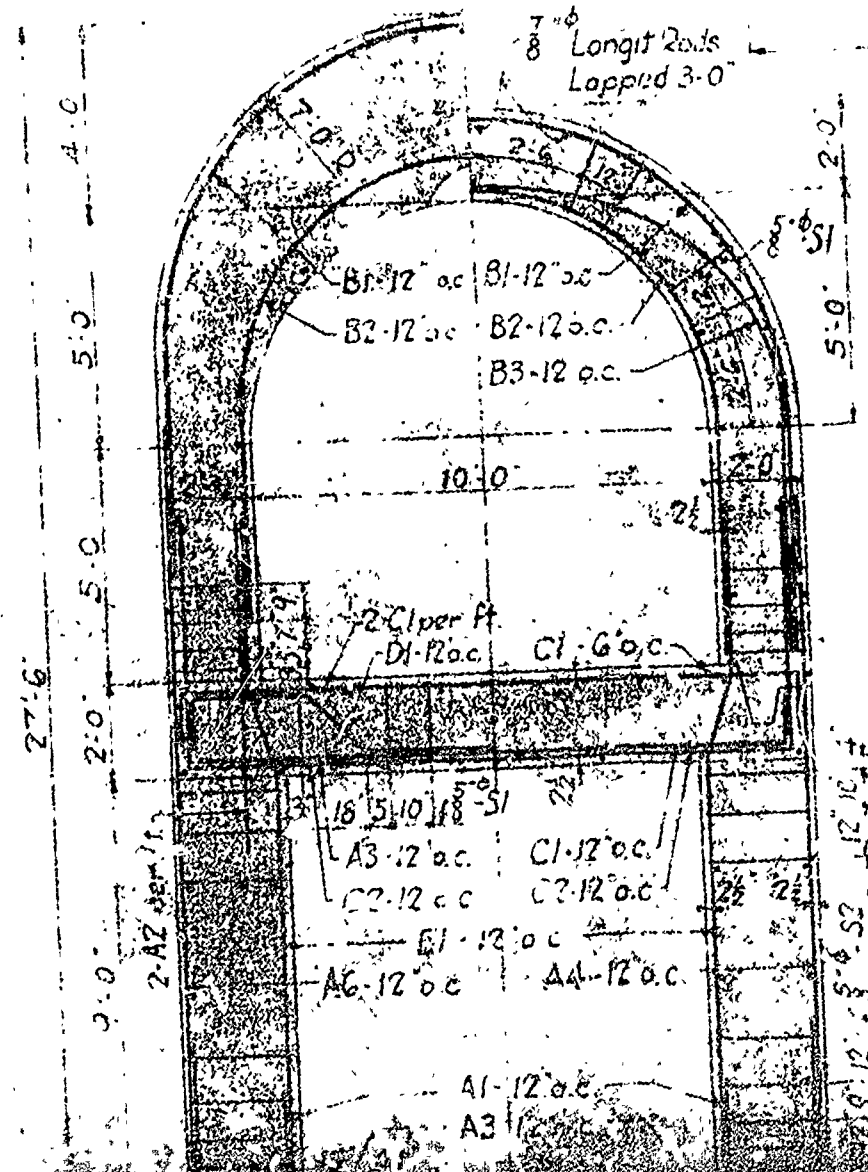 7/8"ϕ Longit Rods
Lapped 3-0"
4-0
7-0"R
2-6
12"
2-0"
5/8"ϕ S1
B1-12" o.c.
B1-12" o.c.
B2-12" o.c.
B2-12" o.c.
B3-12 o.c.
5-0"
5-0"
2-6
10-0"
2-0"
2½
5-0
2-C1 per ft.
D1-12" o.c.
C1-6" o.c.
27'-6"
2'-0"
18" 5 10"
5/8"ϕ-S1
2½
A3-12" o.c.
C1-12" o.c.
C2-12 o.c.
C2-12" o.c.
2-A2 per ft.
2½
2½
E1-12" o.c.
A6-12" o.c.
A4-12" o.c.
9-0"
5/8"ϕ-S2
A1-12" o.c.
A3